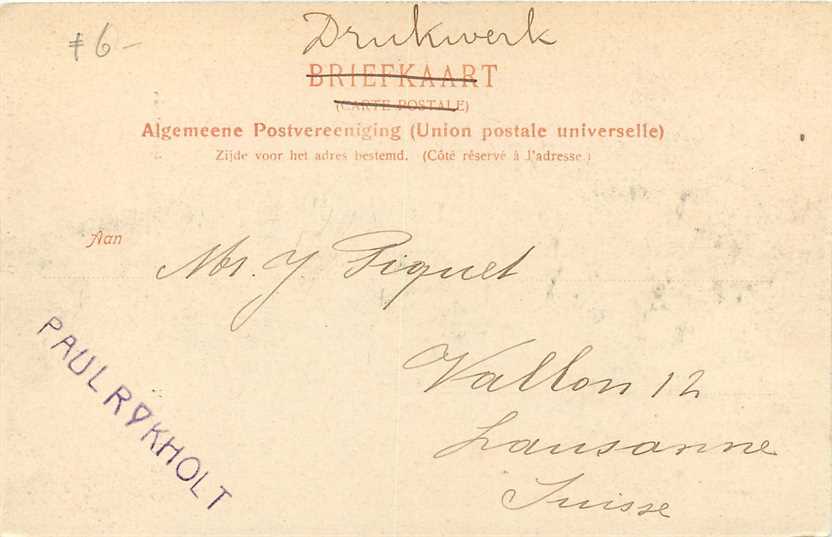 Drukwerk
ƒ 6-
BRIEFKAART
(CARTE POSTALE)
Algemeene Postvereeniging (Union postale universelle)
Zijde voor het adres bestemd. (Côté réservé à l'adresse.)
Aan
Mr. J Piguet
Vallon 12
Lausanne
Suisse
PAUL RYKHOLT